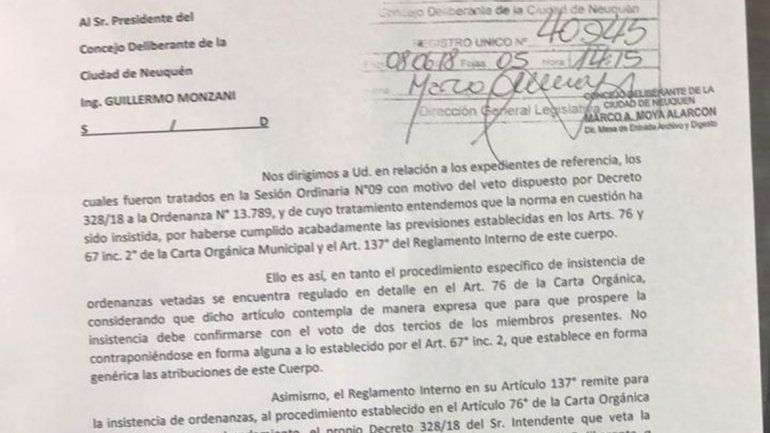 Al Sr. Presidente del
Concejo Deliberante de la
Ciudad de Neuquén
Ing. GUILLERMO MONZANI
S / D
Concejo Deliberante de la Ciudad de Neuquén
REGISTRO UNICO Nº 40945
08/06/18 Fojas 05 Hora 14:15
Dirección General Legislativa
CONCEJO DELIBERANTE DE LA
CIUDAD DE NEUQUEN
MARCO A. MOYA ALARCON
Dir. Mesa de Entrada Archivo y Digesto
Nos dirigimos a Ud. en relación a los expedientes de referencia, los
cuales fueron tratados en la Sesión Ordinaria N°09 con motivo del veto dispuesto por Decreto
328/18 a la Ordenanza N° 13.789, y de cuyo tratamiento entendemos que la norma en cuestión ha
sido insistida, por haberse cumplido acabadamente las previsiones establecidas en los Arts. 76 y
67 inc. 2° de la Carta Orgánica Municipal y el Art. 137° del Reglamento Interno de este cuerpo.
Ello es así, en tanto el procedimiento específico de insistencia de
ordenanzas vetadas se encuentra regulado en detalle en el Art. 76 de la Carta Orgánica,
considerando que dicho artículo contempla de manera expresa que para que prospere la
insistencia debe confirmarse con el voto de dos tercios de los miembros presentes. No
contraponiéndose en forma alguna a lo establecido por el Art. 67° inc. 2, que establece en forma
genérica las atribuciones de este Cuerpo.
Asimismo, el Reglamento Interno en su Artículo 137° remite para
la insistencia de ordenanzas, al procedimiento establecido en el Artículo 76° de la Carta Orgánica
el propio Decreto 328/18 del Sr. Intendente que veta la